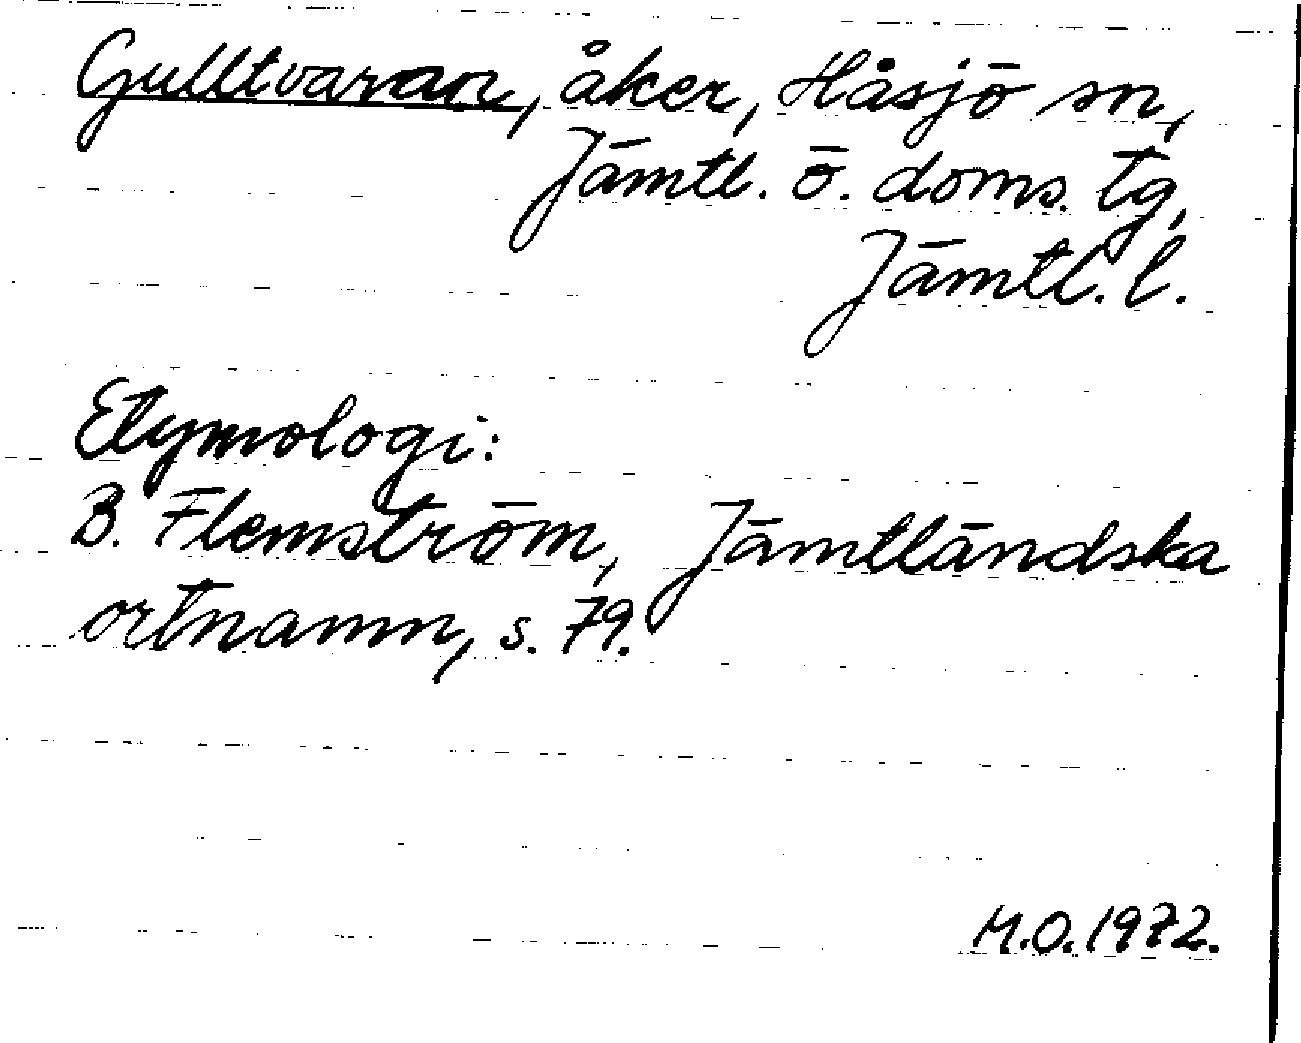 Gulltvaran, åker, Håsjö sn,
Jämtl. ö. doms. tg,
Jämtl. l.
Etymologi:
B. Flemström, Jämtländska
ortnamn, s. 79.
M.O. 1972.